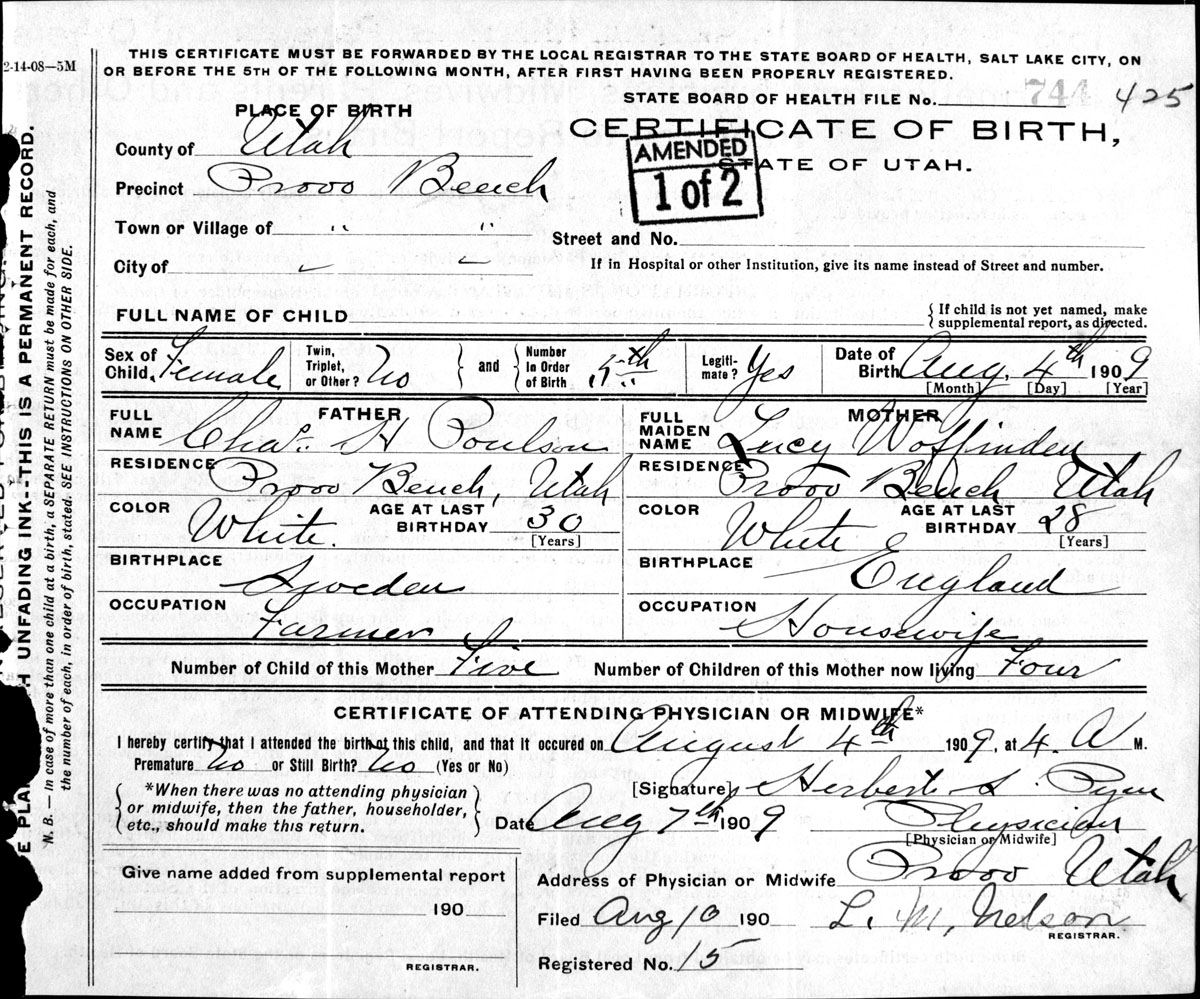 2-14-08—5M
THIS CERTIFICATE MUST BE FORWARDED BY THE LOCAL REGISTRAR TO THE STATE BOARD OF HEALTH, SALT LAKE CITY, ON
OR BEFORE THE 5TH OF THE FOLLOWING MONTH, AFTER FIRST HAVING BEEN PROPERLY REGISTERED.
PLACE OF BIRTH
STATE BOARD OF HEALTH FILE No. 744 425
County of Utah
CERTIFICATE OF BIRTH,
AMENDED
1 of 2
STATE OF UTAH.
Precinct Provo Bench
Town or Village of " "
Street and No.
City of
If in Hospital or other Institution, give its name instead of Street and number.
FULL NAME OF CHILD
{If child is not yet named, make
supplemental report, as directed.
Sex of Child. Female
Twin, Triplet, or Other? No
and
Number In Order of Birth 5th
Legiti-mate? Yes
Date of Birth Aug. 4th 1909
[Month] [Day] [Year]
FATHER
FULL NAME Chas H Poulson
MOTHER
FULL MAIDEN NAME Lucy Woffinden
RESIDENCE Provo Bench, Utah
RESIDENCE Provo Bench Utah
COLOR White. AGE AT LAST BIRTHDAY 30 [Years]
COLOR White AGE AT LAST BIRTHDAY 28 [Years]
BIRTHPLACE Sweden
BIRTHPLACE England
OCCUPATION Farmer
OCCUPATION Housewife
Number of Child of this Mother Five Number of Children of this Mother now living Four
CERTIFICATE OF ATTENDING PHYSICIAN OR MIDWIFE*
I hereby certify that I attended the birth of this child, and that it occured on August 4th 1909, at 4. A M.
Premature No or Still Birth? No (Yes or No)
*When there was no attending physician
or midwife, then the father, householder,
etc., should make this return.
[Signature] Herbert S. Pyne
Date Aug 7th 1909 Physician
[Physician or Midwife]
Give name added from supplemental report
190
REGISTRAR.
Address of Physician or Midwife Provo Utah
Filed Aug 10 190 L. M. Nelson
REGISTRAR.
Registered No. 15
UNFADING INK—THIS IS A PERMANENT RECORD
N. B.—In case of more than one child at a birth, a SEPARATE RETURN must be made for each, and
the number of each, in order of birth, stated. SEE INSTRUCTIONS ON OTHER SIDE.